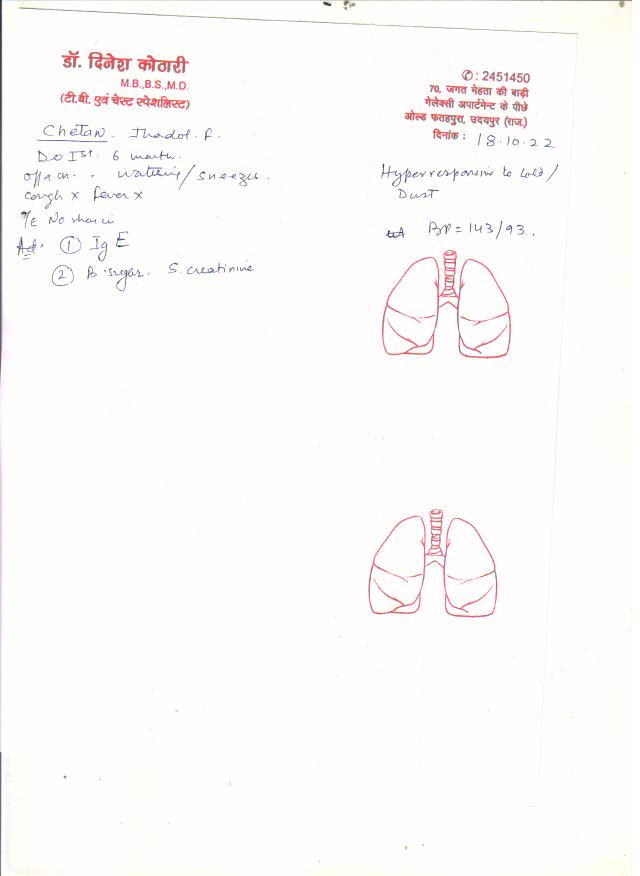 डॉ. दिनेश कोठारी
M.B.,B.S.,M.D.
(टी.बी. एवं चेस्ट स्पेशलिस्ट)
✆ : 2451450
70, जगत मेहता की बाड़ी
गेलेक्सी अपार्टमेन्ट के पीछे
ओल्ड फतहपुरा, उदयपुर (राज.)
दिनांक : 18.10.22
Chetan
6 month.
watering/sneezes.
cough x fever x
No
Ad. ① Ig E
② B. sugar. S. creatinine
Hyperresponsive to cold/
Dust
BP = 143/93.